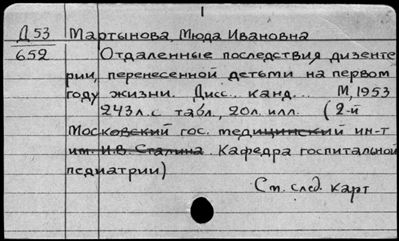 1
Д 53 Мартынова, Мюда Ивановна
652 Отдаленные последствия дизенте
рии, перенесенной детьми на первом
году жизни. Дисс... канд... М, 1953
243л. с табл., 20л. илл. (2-й
Московский гос. медицинский ин-т
им. И.В. Сталина. Кафедра госпитальной
педиатрии)
См. след. карт